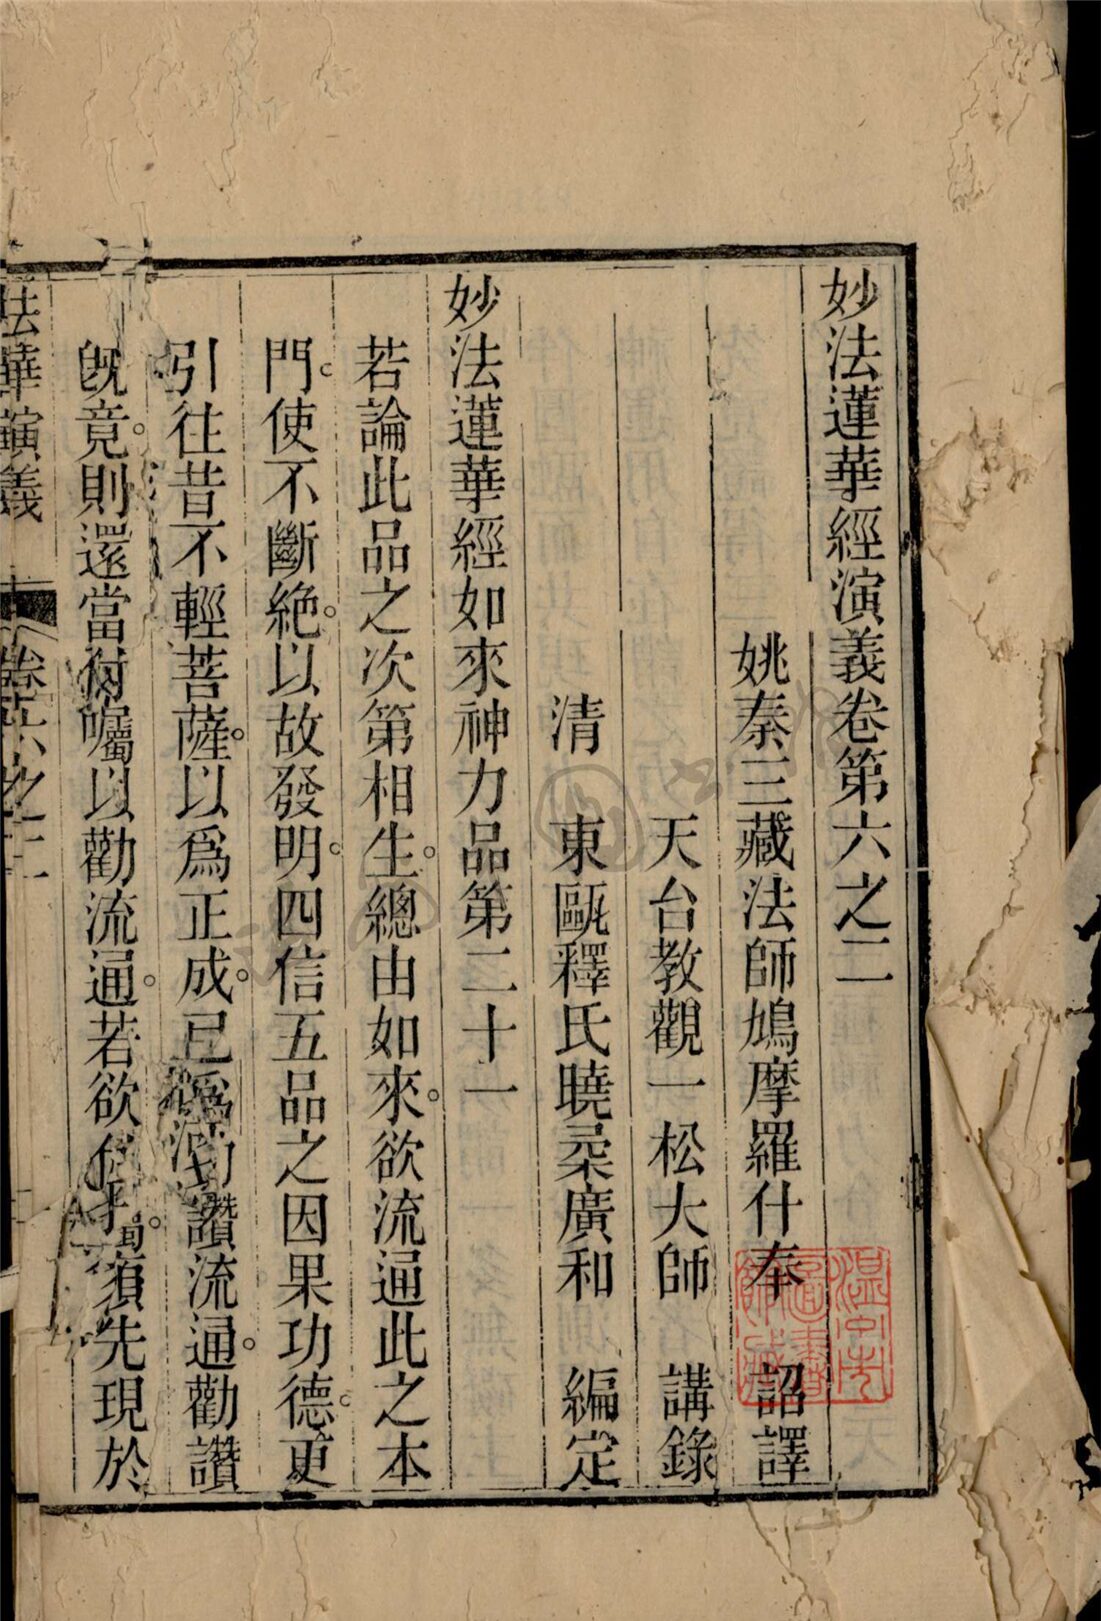 妙法蓮華經演義卷第六之二
姚秦三藏法師鳩摩羅什奉　詔譯
天台教觀一松大師　講錄
清　東甌釋氏曉柔廣和　編定
妙法蓮華經如來神力品第二十一
若論此品之次第相生。總由如來。欲流通此之本
門。使不斷絕。以故發明。四信五品之因果功德。更
引往昔不輕菩薩。以爲正成。已爲讚流通。勸讚
旣竟。則還當付囑以勸流通。若欲須先現於
法華演義　卷六之二
溫州市圖書館藏